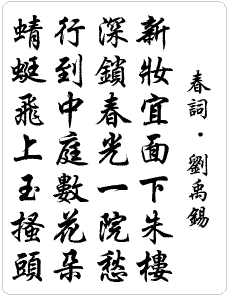 春詞・劉禹錫
新妝宜面下朱樓
深鎖春光一院愁
行到中庭數花朵
蜻蜓飛上玉搔頭